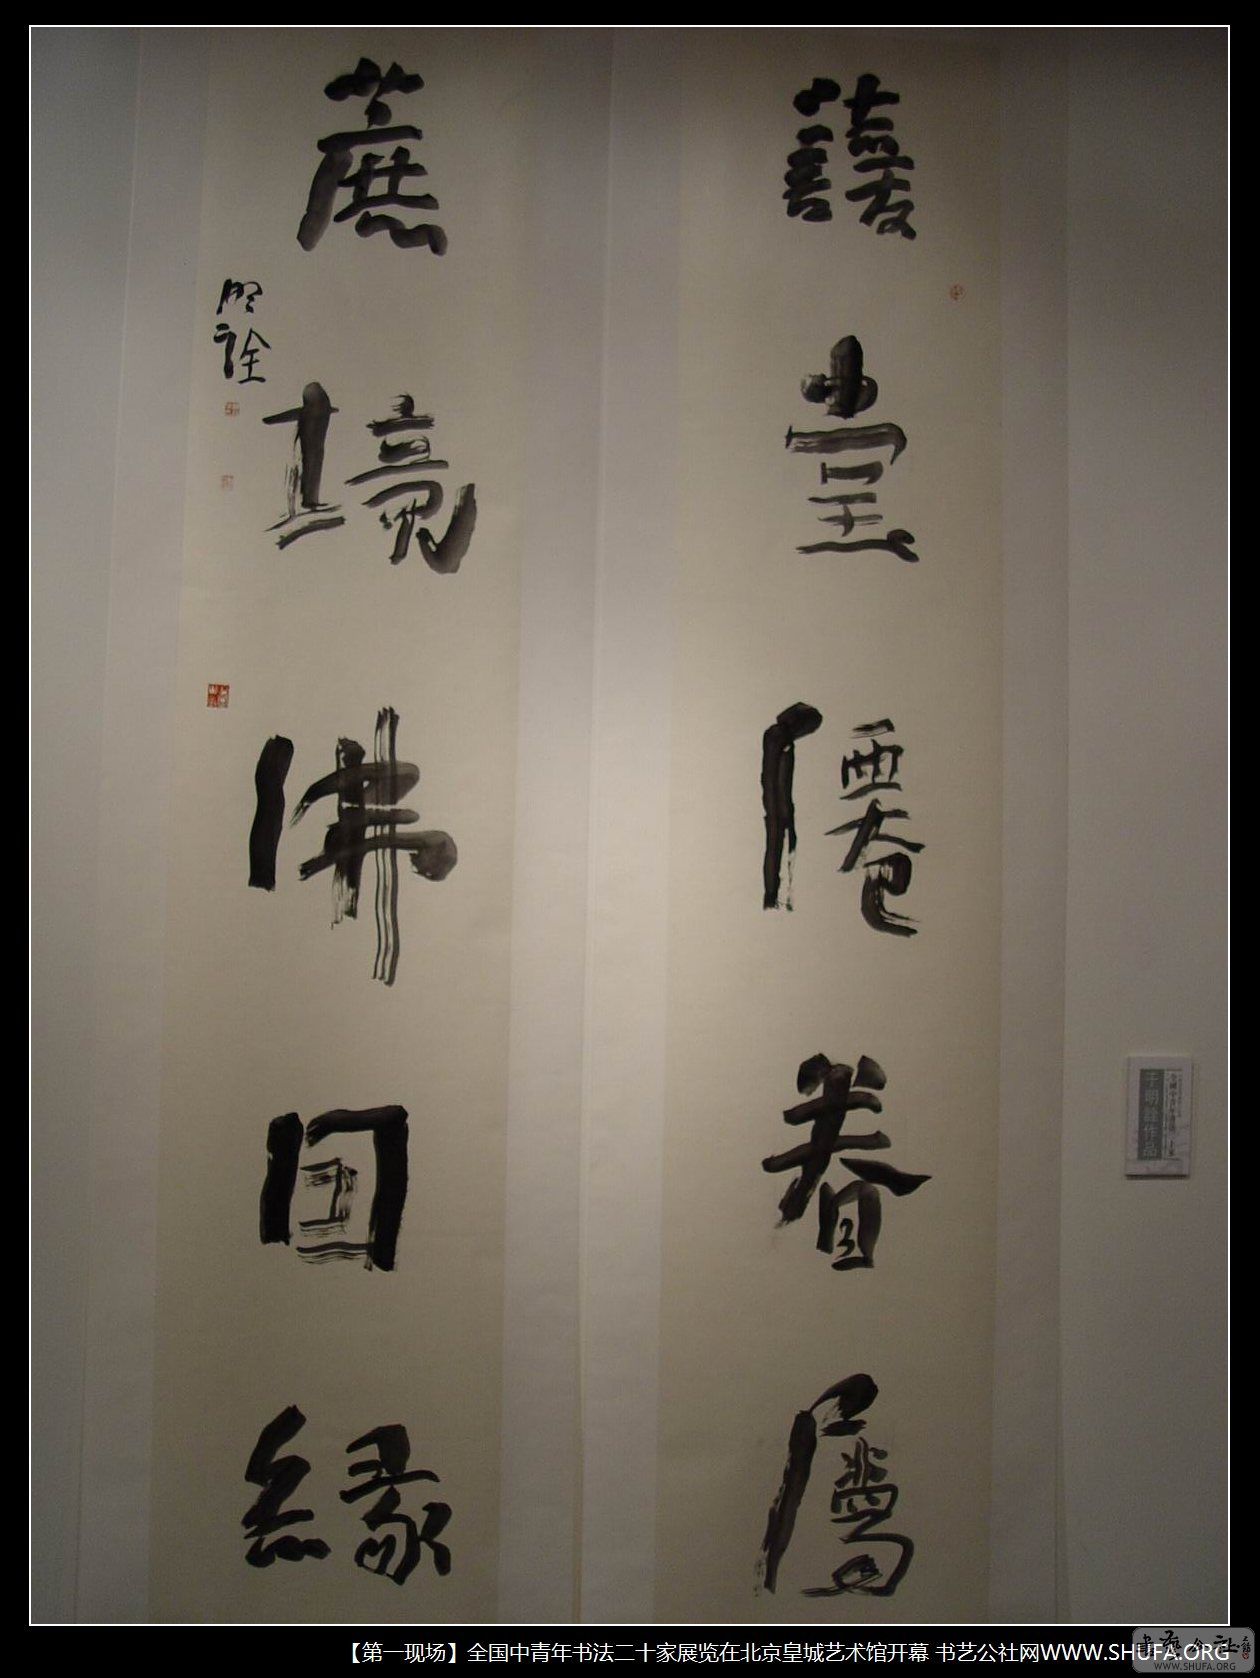 護堂僊眷屬
蔗境佛因緣
明詮
于明詮作品
【第一现场】全国中青年书法二十家展览在北京皇城艺术馆开幕 书艺公社网WWW.SHUFA.ORG
书艺公社
WWW.SHUFA.ORG